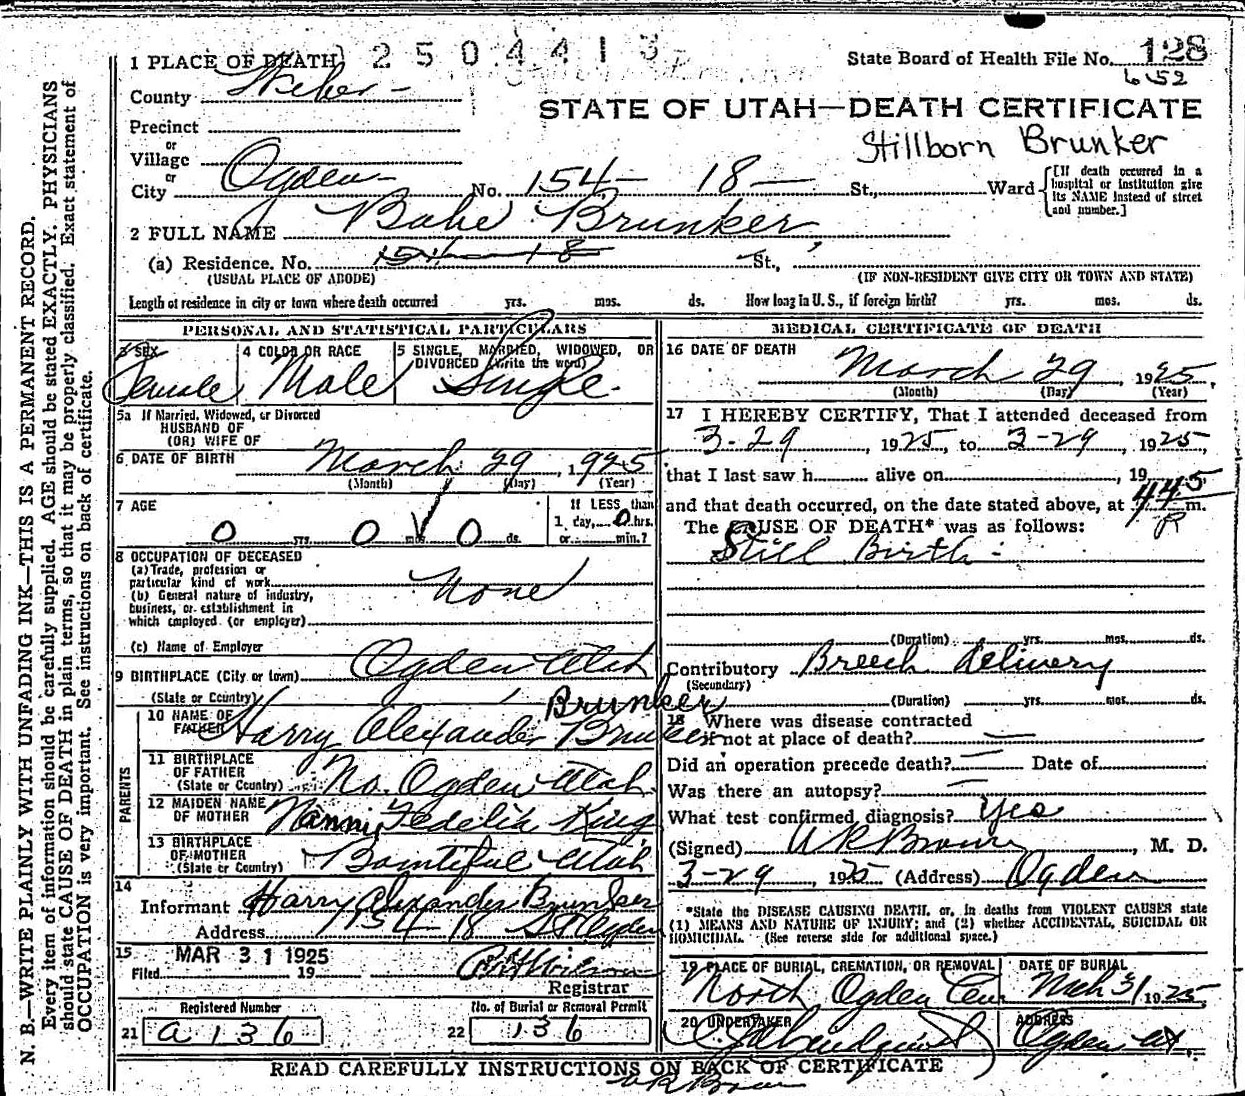 N. B.—WRITE PLAINLY WITH UNFADING INK—THIS IS A PERMANENT RECORD.
Every item of information should be carefully supplied. AGE should be stated EXACTLY. PHYSICIANS
should state CAUSE OF DEATH in plain terms, so that it may be properly classified. Exact statement of
OCCUPATION is very important. See instructions on back of certificate.
1 PLACE OF DEATH
2 5 0 4 4 1 3
State Board of Health File No. 128
652
County Weber
STATE OF UTAH—DEATH CERTIFICATE
Precinct
or
Village
Stillborn Brunker
or
City Ogden No. 154 18 St., Ward
[If death occurred in a
hospital or institution give
its NAME instead of street
and number.]
2 FULL NAME Babe Brunker
(a) Residence. No. 154 18 St.,
(USUAL PLACE OF ABODE) (IF NON-RESIDENT GIVE CITY OR TOWN AND STATE)
Length of residence in city or town where death occurred yrs. mos. ds. How long in U. S., if foreign birth? yrs. mos. ds.
PERSONAL AND STATISTICAL PARTICULARS
3 SEX
Female
4 COLOR OR RACE
Male
5 SINGLE, MARRIED, WIDOWED, OR
DIVORCED (write the word)
Single
5a If Married, Widowed, or Divorced
HUSBAND OF
(OR) WIFE OF
6 DATE OF BIRTH March 29, 1925
(Month) (Day) (Year)
7 AGE
0 yrs. 0 mos. 0 ds.
If LESS than
1 day, 0 hrs.
or min.?
8 OCCUPATION OF DECEASED
(a) Trade, profession or
particular kind of work
(b) General nature of industry,
business, or establishment in
which employed (or employer)
None
(c) Name of Employer
9 BIRTHPLACE (City or town) Ogden Utah
(State or Country)
PARENTS
Brunker
10 NAME OF
FATHER Harry Alexander Brunker
11 BIRTHPLACE
OF FATHER
(State or Country) No. Ogden Utah
12 MAIDEN NAME
OF MOTHER Nannie Fedelia King
13 BIRTHPLACE
OF MOTHER
(State or Country) Bountiful Utah
14
Informant Harry Alexander Brunker
Address 154 18 St Ogden
15
Filed MAR 31 1925 19
Registrar
Registered Number
21 a 136
No. of Burial or Removal Permit
22 136
MEDICAL CERTIFICATE OF DEATH
16 DATE OF DEATH
March 29, 1925,
(Month) (Day) (Year)
17 I HEREBY CERTIFY, That I attended deceased from
3-29, 1925, to 3-29, 1925,
that I last saw h alive on , 19
and that death occurred, on the date stated above, at 445 P m.
The CAUSE OF DEATH* was as follows:
Still Birth
(Duration) yrs. mos. ds.
Contributory Breech delivery
(Secondary)
(Duration) yrs. mos. ds.
18 Where was disease contracted
if not at place of death?
Did an operation precede death? Date of
Was there an autopsy?
What test confirmed diagnosis? Yes
(Signed) W R Brown, M. D.
3-29, 1925 (Address) Ogden
*State the DISEASE CAUSING DEATH, or, in deaths from VIOLENT CAUSES state
(1) MEANS AND NATURE OF INJURY; and (2) whether ACCIDENTAL, SUICIDAL OR
HOMICIDAL. (See reverse side for additional space.)
19 PLACE OF BURIAL, CREMATION, OR REMOVAL
North Ogden Cem
DATE OF BURIAL
Mch 31 1925,
20 UNDERTAKER
ADDRESS
Ogden Ut.
READ CAREFULLY INSTRUCTIONS ON BACK OF CERTIFICATE
W R Brown